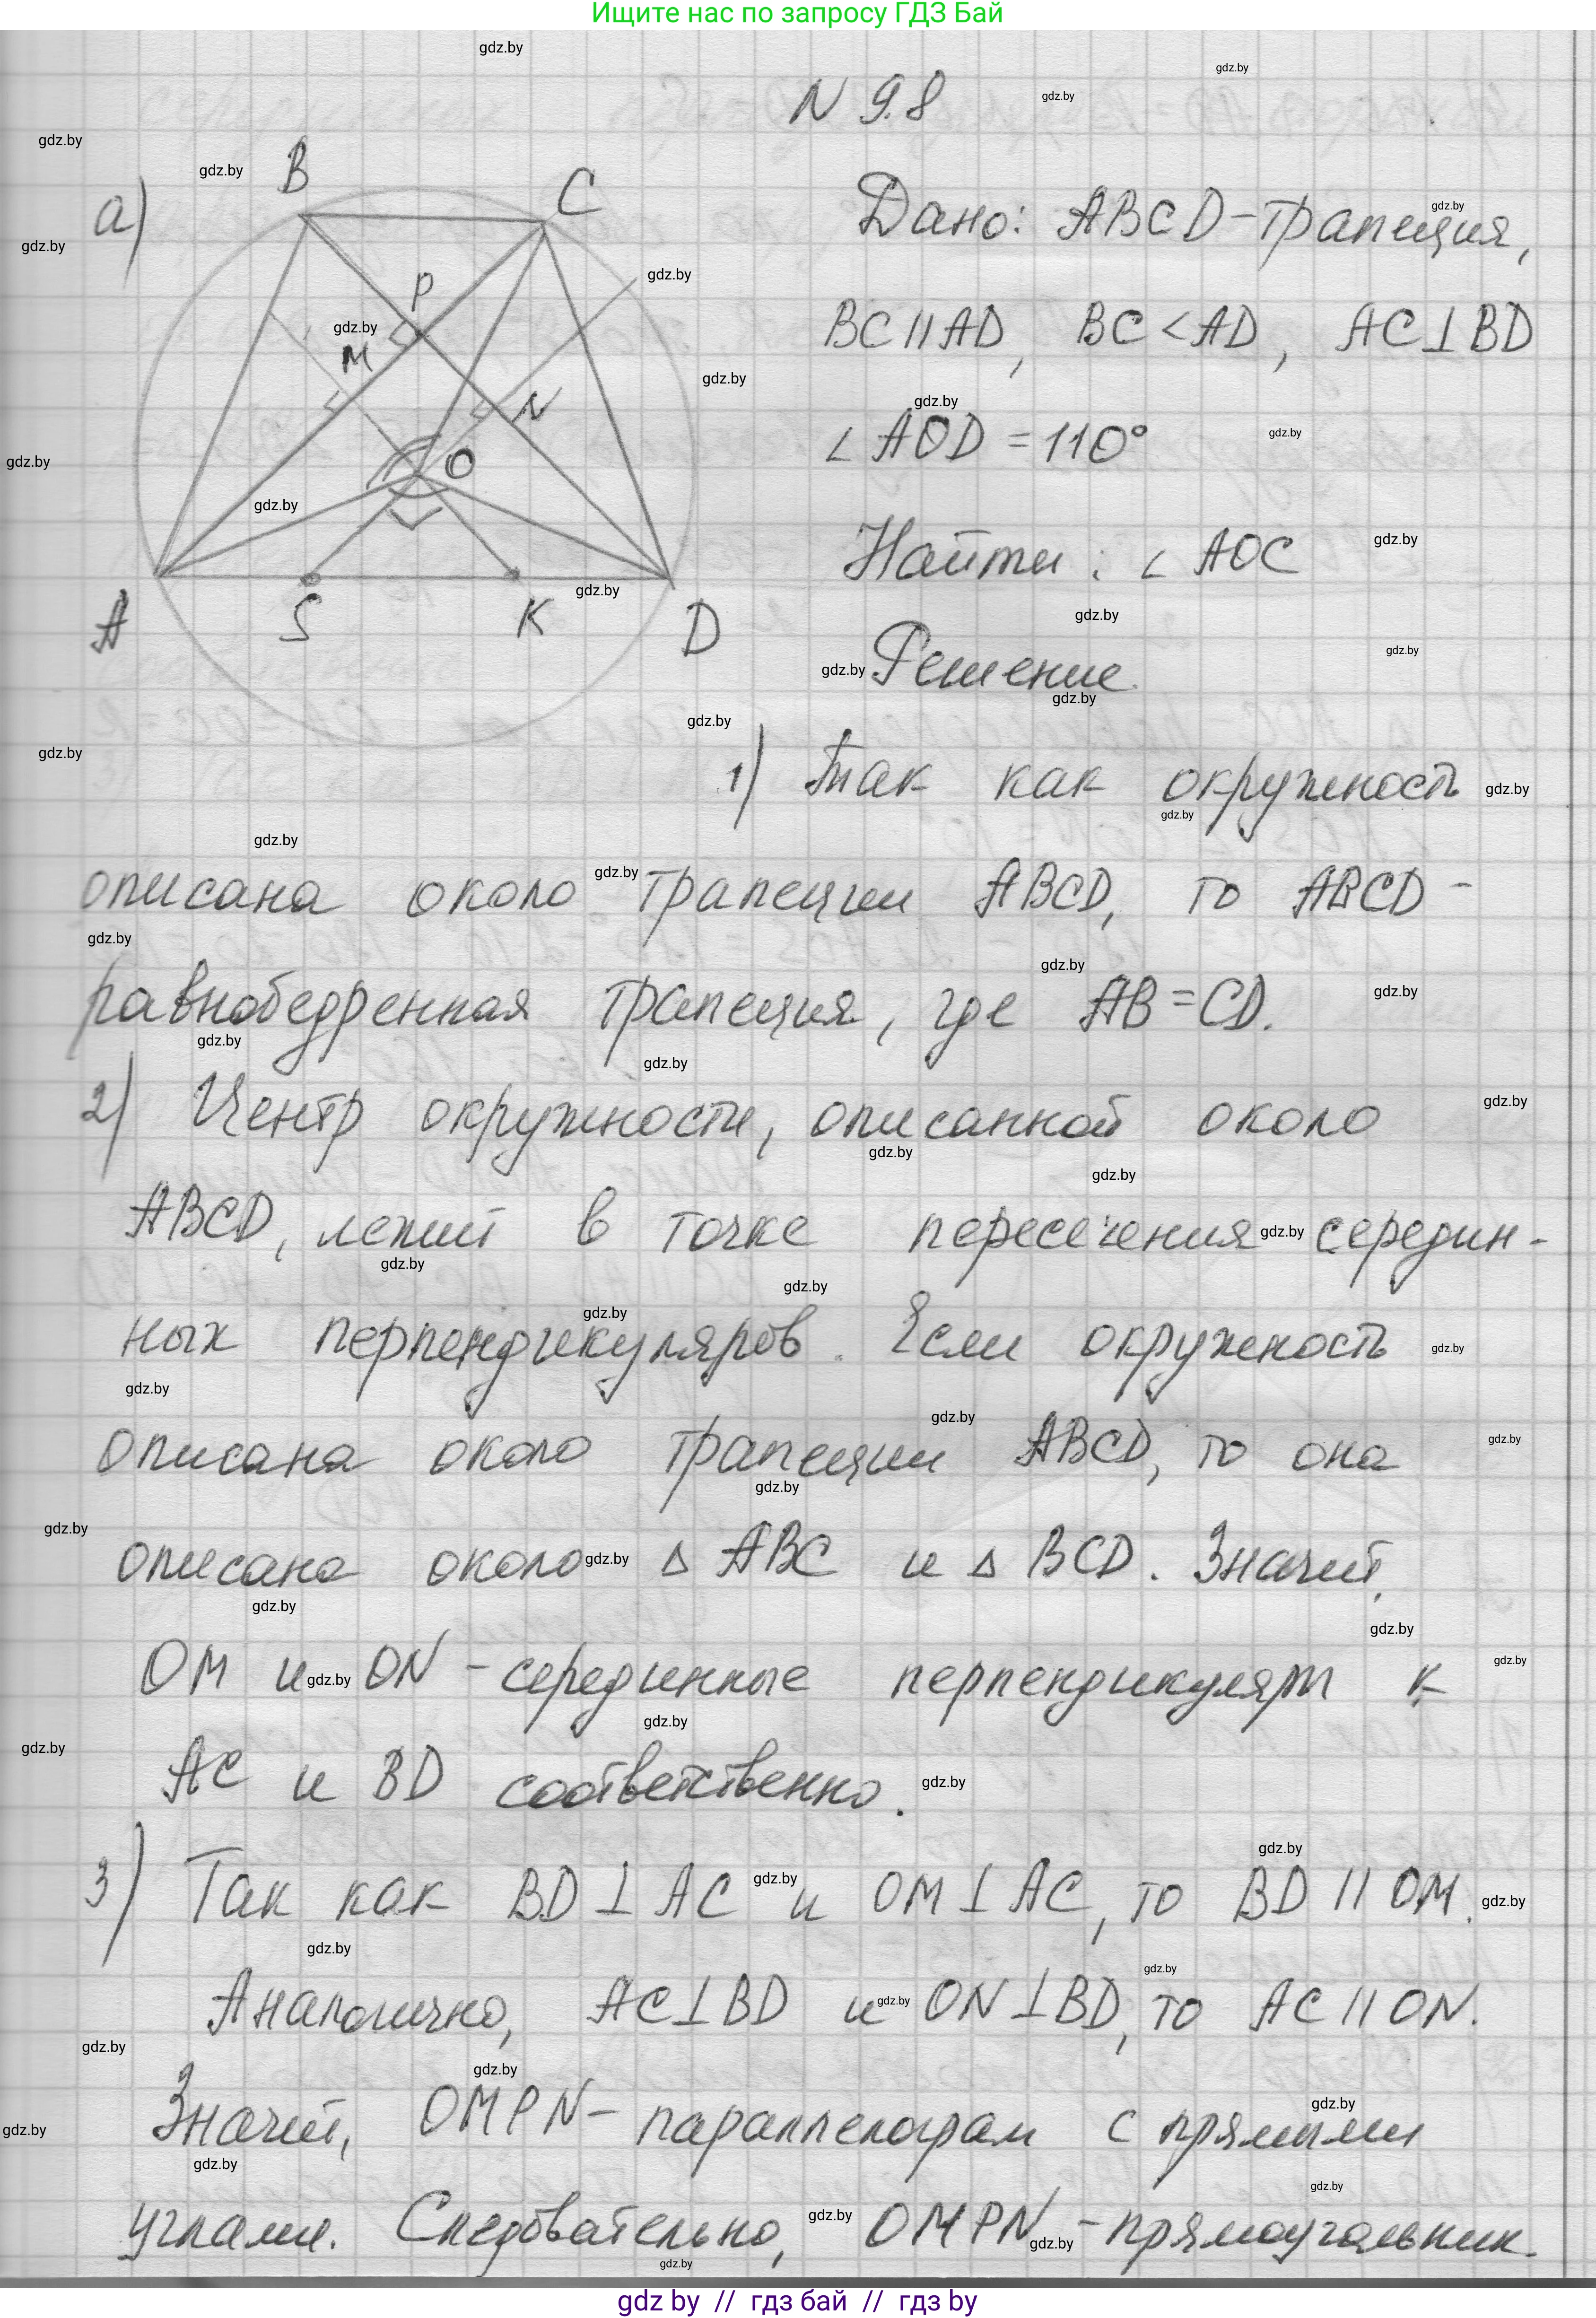 Ищите нас по запросу ГДЗ Бай
N 9.8
а)
B
C
P
M
N
O
A
S
K
D
Дано: ABCD-трапеция,
BC||AD, BC<AD, AC⊥BD
∠AOD=110°
Найти: ∠AOC
Решение.
1) Так как окружность
описана около трапеции ABCD, то ABCD -
равнобедренная трапеция, где AB=CD.
2) Центр окружности, описанной около
ABCD, лежит в точке пересечения середин-
ных перпендикуляров. Если окружность
описана около трапеции ABCD, то она
описана около Δ ABC и Δ BCD. Значит,
OM и ON - серединные перпендикуляры к
AC и BD соответственно.
3) Так как BD⊥AC и OM⊥AC, то BD||OM.
Аналогично, AC⊥BD и ON⊥BD, то AC||ON.
Значит, OMPN - параллелограм с прямыми
углами. Следовательно, OMPN - прямоугольник.
gdz by // гдз бай // гдз by